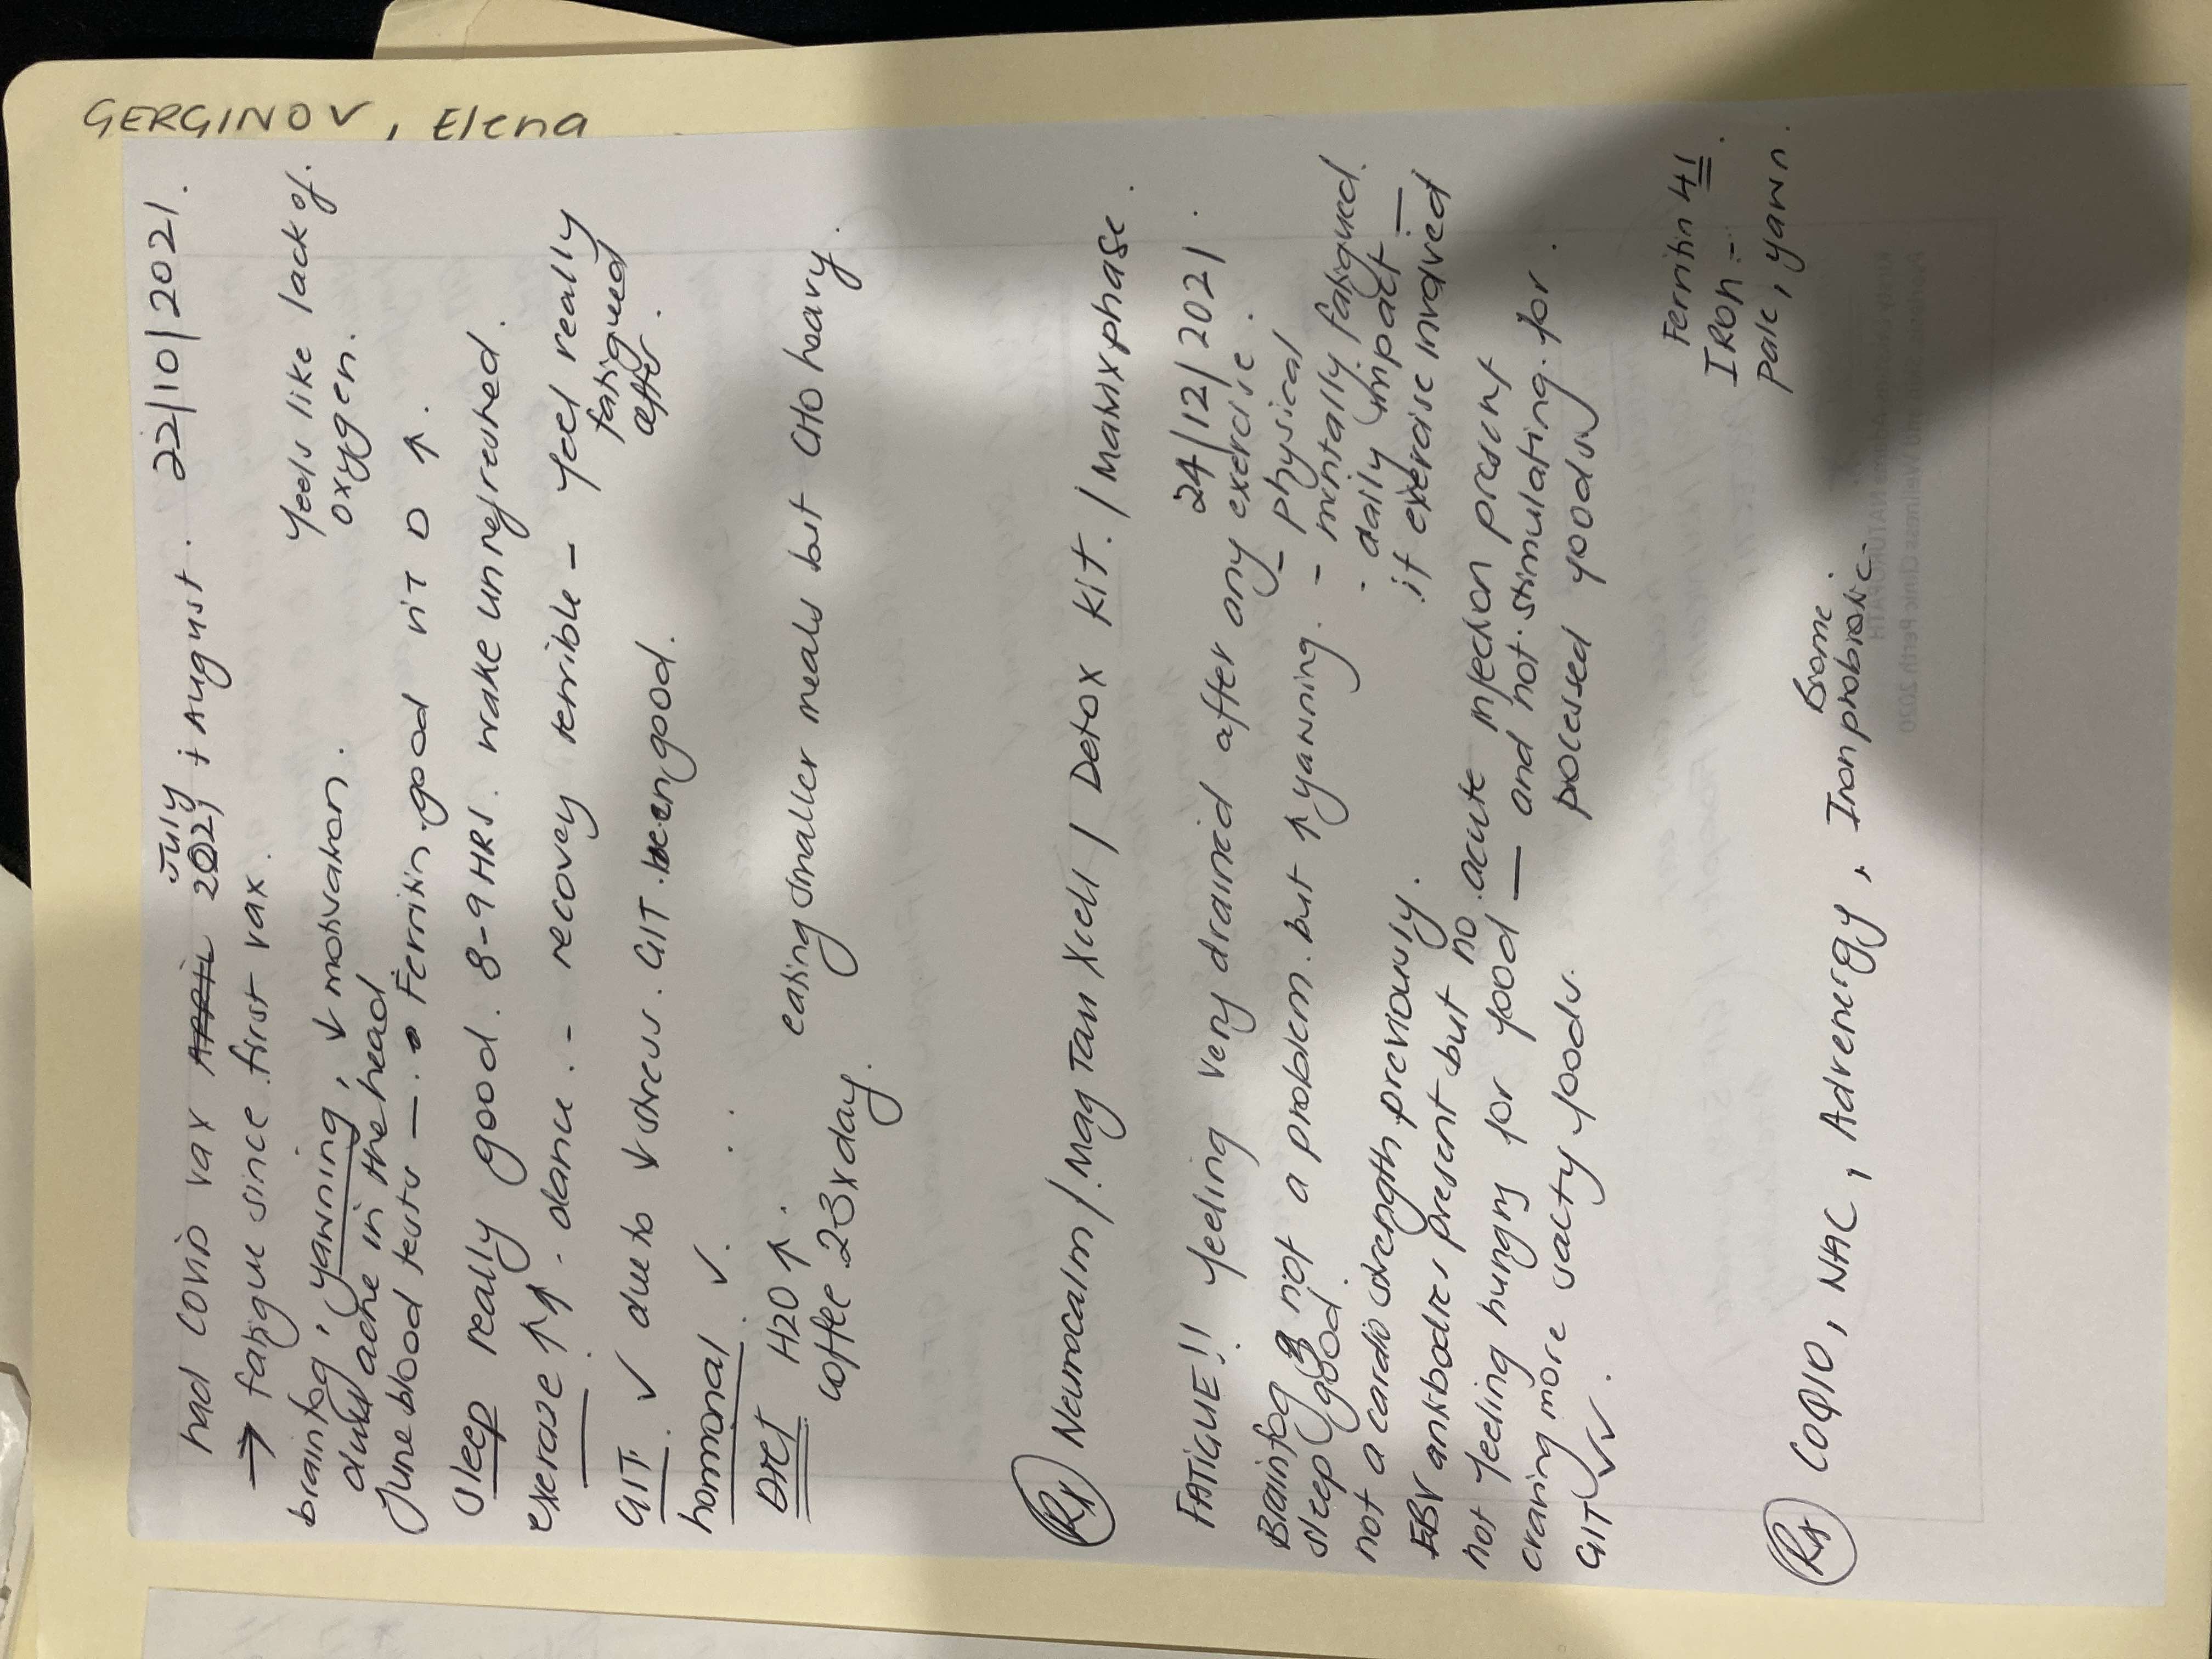 GERGINOV, Elena
22/10/2021.
July
had covid vax APRIL 2021, + August.
→ fatigue since first vax.
feels like lack of
oxygen.
brainfog, yawning, ↓ motivation.
dull ache in the head
June blood tests — Ferritin good vit D ↑.
Sleep really good. 8-9 HRS. wake unrefreshed.
exercise ↑↑ - dance. - recovery terrible - feel really
fatigued
after.
GIT. ✓ due to ↓ stress. GIT been good.
hormonal ✓.
DIET H2O ↑.
coffee 23xday.
eating smaller meals but CHO heavy.
Rx Neurocalm / Mag Tau Xcell / Detox kit. / MaMxphase.
24/12/2021.
FATIGUE!! feeling very drained after any exercise.
- physical
- mentally fatigued.
- daily impact —
if exercise involved
Brainfog not a problem. but ↑ yawning.
sleep good.
not a cardio strength previously.
EBV antibodies present but no acute infection present
not feeling hungry for food — and not stimulating for
craving more salty foods. processed foods
GIT ✓✓.
Ferritin 41.
IRON -
Pale, yawn.
Rx COQ10, NAC, Adrenergy, Iron probiotic.
Biome.